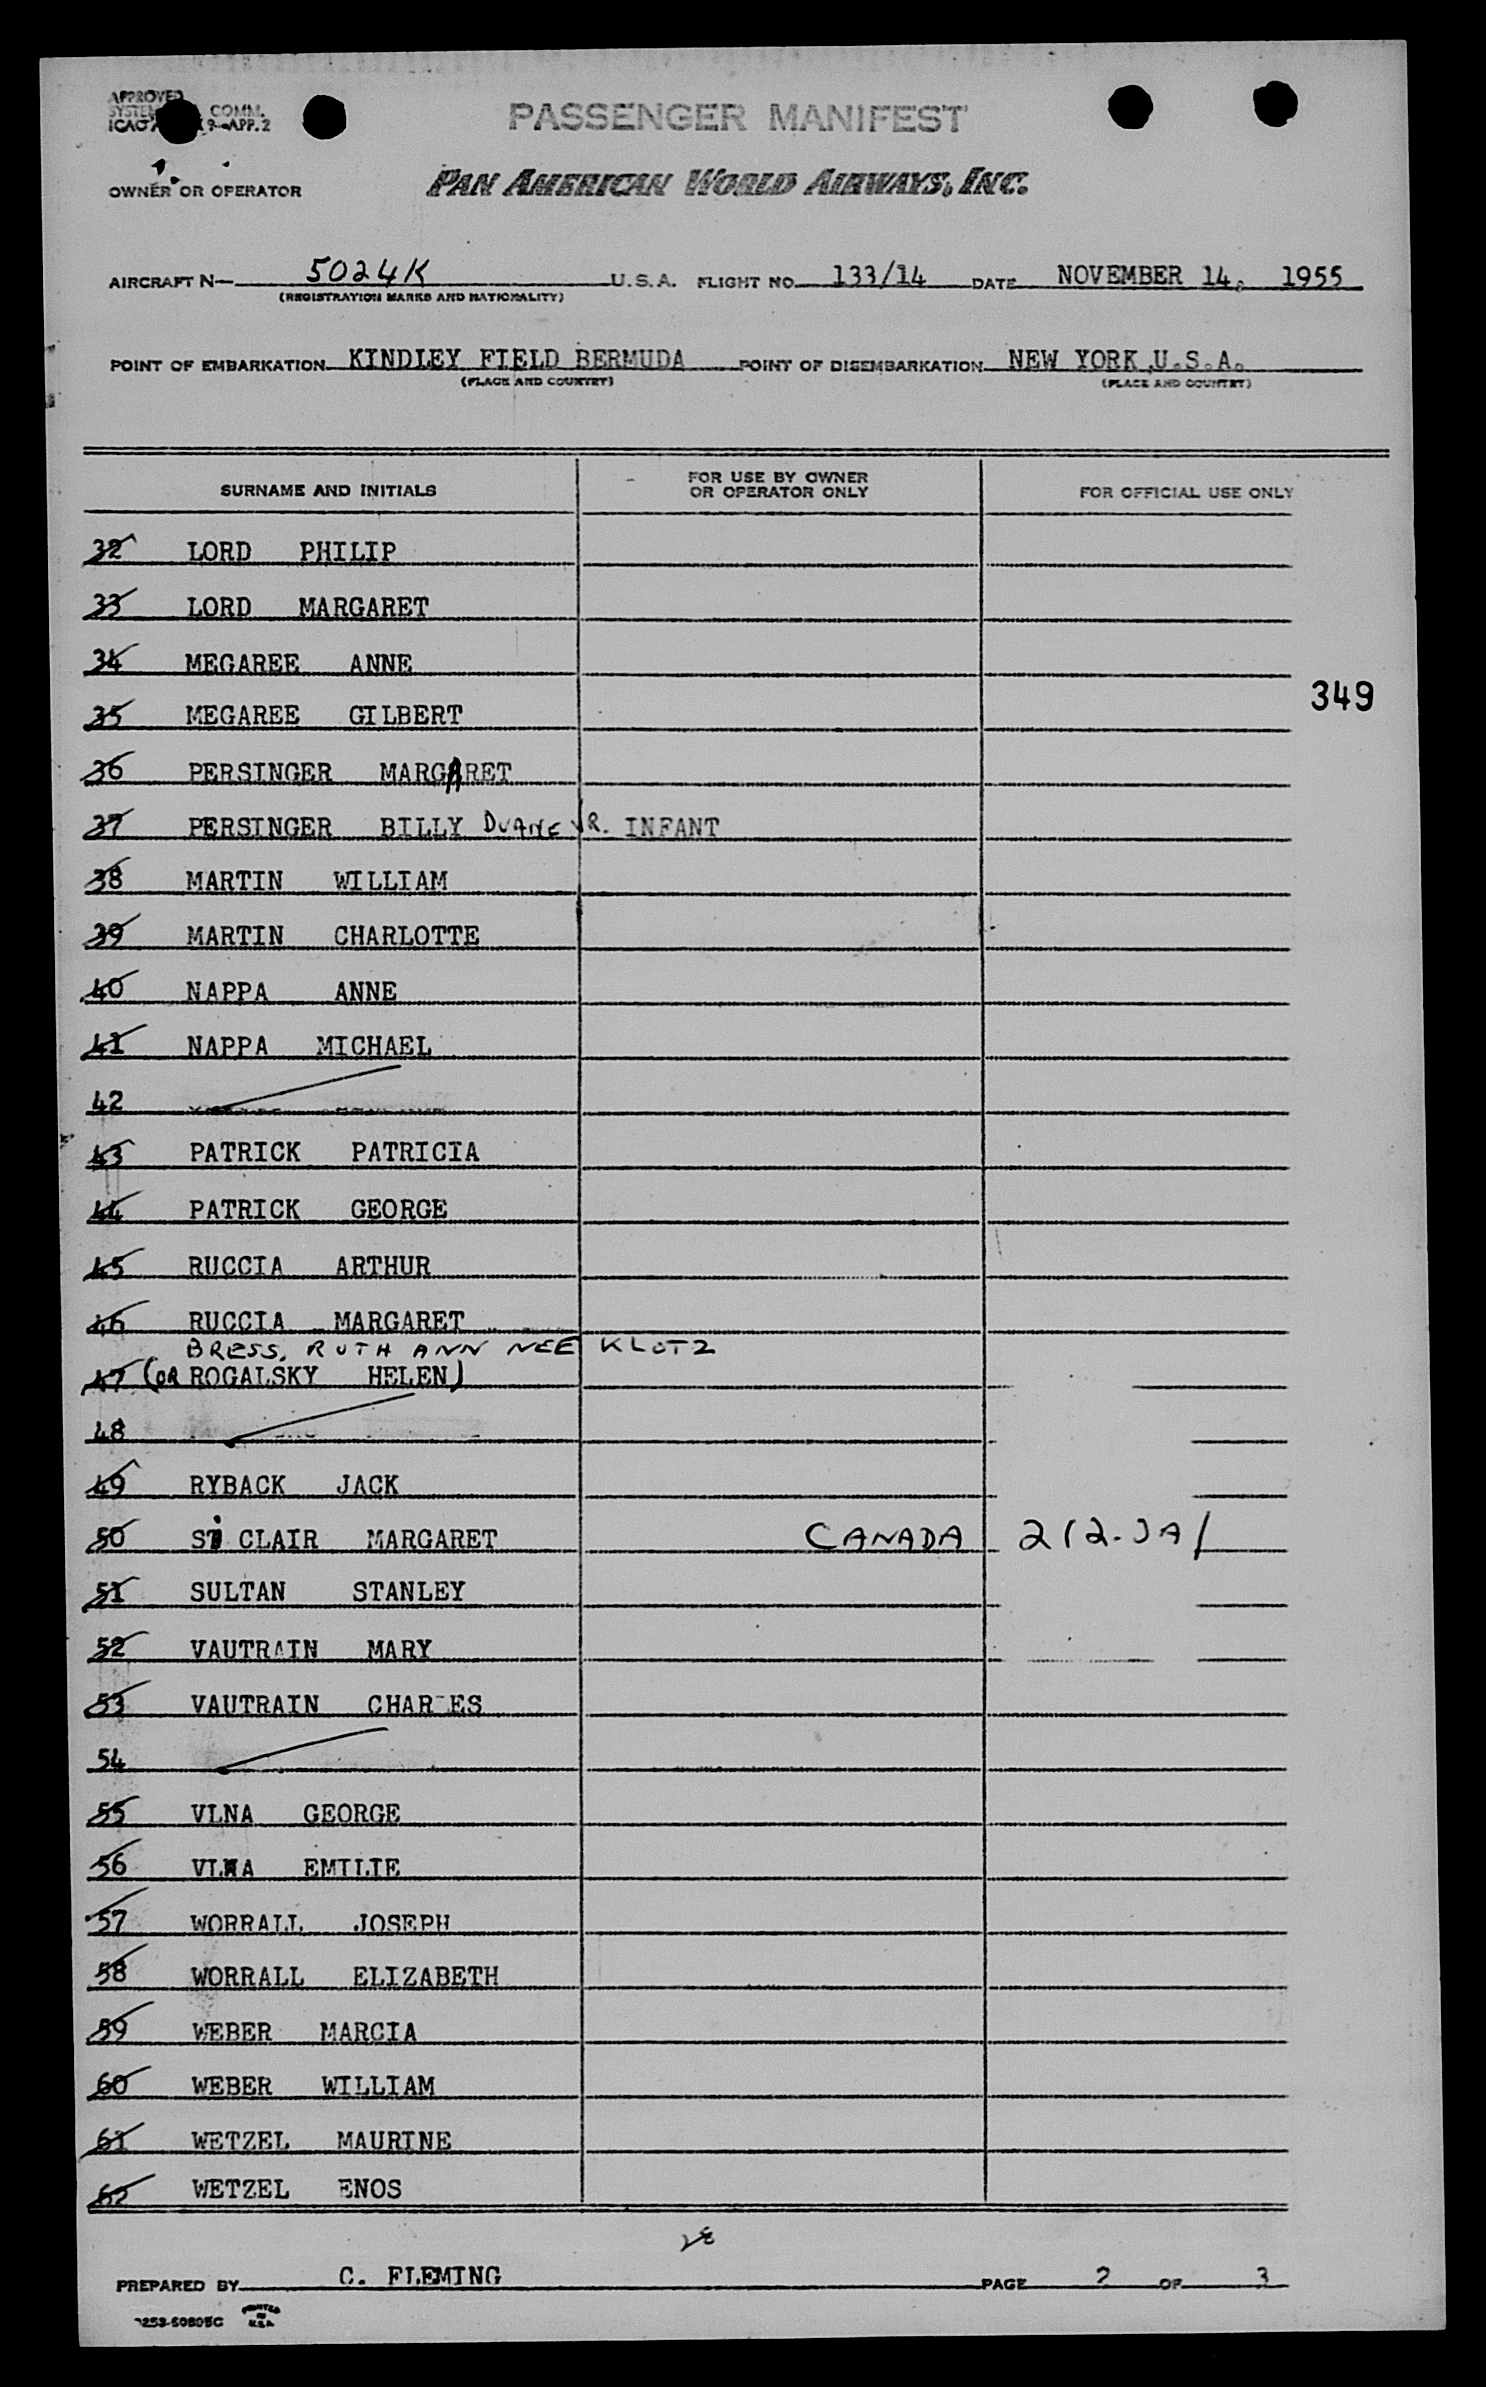 APPROVED
COMM.
9-APP. 2
PASSENGER MANIFEST
OWNER OR OPERATOR PAN AMERICAN WORLD AIRWAYS, INC.
AIRCRAFT N— 5024K U.S.A. FLIGHT NO. 133/14 DATE NOVEMBER 14, 1955
(REGISTRATION MARKS AND NATIONALITY)
POINT OF EMBARKATION KINDLEY FIELD BERMUDA POINT OF DISEMBARKATION NEW YORK, U.S.A.
(PLACE AND COUNTRY) (PLACE AND COUNTRY)
SURNAME AND INITIALS FOR USE BY OWNER OR OPERATOR ONLY FOR OFFICIAL USE ONLY
32 LORD PHILIP
33 LORD MARGARET
34 MEGAREE ANNE
349
35 MEGAREE GILBERT
36 PERSINGER MARGARET
37 PERSINGER BILLY DUANE JR. INFANT
38 MARTIN WILLIAM
39 MARTIN CHARLOTTE
40 NAPPA ANNE
41 NAPPA MICHAEL
42
43 PATRICK PATRICIA
44 PATRICK GEORGE
45 RUCCIA ARTHUR
46 RUCCIA MARGARET
BRESS, RUTH ANN NEE KLOTZ
47 (OR ROGALSKY HELEN)
48
49 RYBACK JACK
50 CLAIR MARGARET CANADA
51 SULTAN STANLEY
52 VAUTRAIN MARY
53 VAUTRAIN CHARLES
54
55 VLNA GEORGE
56 VLNA EMILIE
57 WORRALL JOSEPH
58 WORRALL ELIZABETH
59 WEBER MARCIA
60 WEBER WILLIAM
61 WETZEL MAURINE
62 WETZEL ENOS
PREPARED BY C. FLEMING PAGE 2 OF 3
PRINTED IN U.S.A.